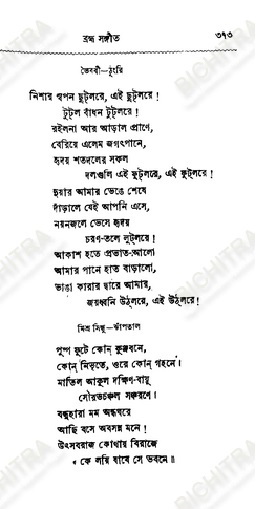 ব্রহ্ম সঙ্গীত ৩৭৩
ভৈরবী—ঠুংরি
নিশার স্বপন ছুট্‌লরে, এই ছুট্‌লরে!
টুট্‌ল বাঁধন টুট্‌লরে!
রইলনা আর আড়াল প্রাণে,
বেরিয়ে এলেম জগৎপানে,
হৃদয় শতদলের সকল
দলগুলি এই ফুট্‌লরে, এই ফুট্‌লরে!
দুয়ার আমার ভেঙে শেষে
দাঁড়ালে যেই আপনি এসে,
নয়নজলে ভেসে হৃদয়
চরণ-তলে লুট্‌লরে!
আকাশ হতে প্রভাত-আলো
আমার পানে হাত বাড়ালো,
ভাঙা কারার দ্বারে আমার,
জয়ধ্বনি উঠ্‌লরে, এই উঠ্‌লরে!
মিশ্র সিন্ধু—ঝাঁপতাল
পুষ্প ফুটে কোন্ কুঞ্জবনে,
কোন্ নিভৃতে, ওরে কোন্ গহনে।
মাতিল আকুল দক্ষিণ-বায়ু
সৌরভচঞ্চল সঞ্চরণে।
বন্ধুহারা মম অন্ধঘরে
আছি বসে অবসন্ন মনে!
উৎসবরাজ কোথায় বিরাজে
কে লয়ি যাবে সে ভবনে॥
BICHITRA